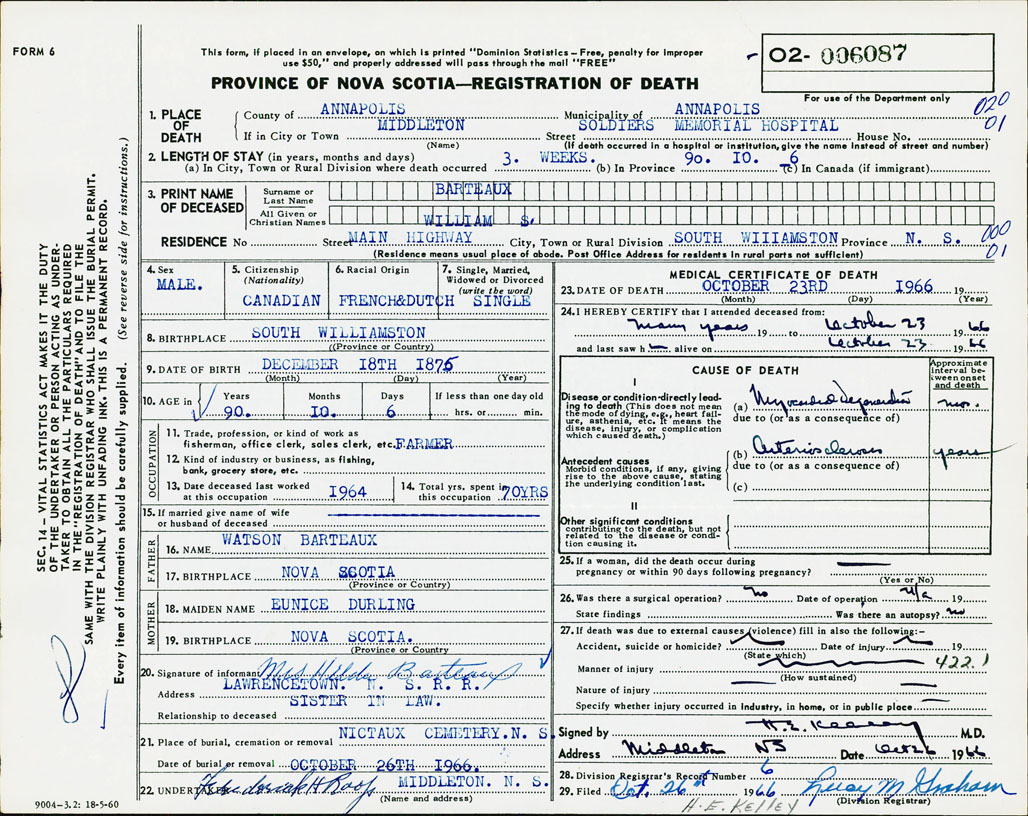 FORM 6
This form, if placed in an envelope, on which is printed "Dominion Statistics – Free, penalty for improper
use $50," and properly addressed will pass through the mail "FREE"
PROVINCE OF NOVA SCOTIA—REGISTRATION OF DEATH
02- 006087
For use of the Department only
020
01
1. PLACE OF DEATH
County of ANNAPOLIS Municipality of ANNAPOLIS
If in City or Town MIDDLETON Street SOLDIERS MEMORIAL HOSPITAL House No.
(Name) (If death occurred in a hospital or institution, give the name instead of street and number)
2. LENGTH OF STAY (in years, months and days) 3. WEEKS. 90. IO. 6
(a) In City, Town or Rural Division where death occurred (b) In Province (c) In Canada (if immigrant)
3. PRINT NAME OF DECEASED
Surname or Last Name BARTEAUX
All Given or Christian Names WILLIAM S.
RESIDENCE No Street MAIN HIGHWAY City, Town or Rural Division SOUTH WIIIAMSTON Province N. S.
000
01
(Residence means usual place of abode. Post Office Address for residents in rural parts not sufficient)
4. Sex
MALE.
5. Citizenship
(Nationality)
CANADIAN
6. Racial Origin
FRENCH&DUTCH
7. Single, Married,
Widowed or Divorced
(write the word)
SINGLE
8. BIRTHPLACE SOUTH WILLIAMSTON
((Province or Country)
9. DATE OF BIRTH DECEMBER I8TH I875
(Month) (Day) (Year)
10. AGE in Years Months Days If less than one day old
90. IO. 6 hrs. or min.
OCCUPATION
11. Trade, profession, or kind of work as
fisherman, office clerk, sales clerk, etc. FARMER
12. Kind of industry or business, as fishing,
bank, grocery store, etc.
13. Date deceased last worked
at this occupation I964
14. Total yrs. spent in
this occupation 70YRS
15. If married give name of wife
or husband of deceased
FATHER
16. NAME WATSON BARTEAUX
17. BIRTHPLACE NOVA SCOTIA
(Province or Country)
MOTHER
18. MAIDEN NAME EUNICE DURLING
19. BIRTHPLACE NOVA SCOTIA.
(Province or Country
20. Signature of informant Mrs Hilda Barteaux
Address LAWRENCETOWN. N. S. R. R.
SISTER IN LAW.
Relationship to deceased
21. Place of burial, cremation or removal NICTAUX CEMETERY.N. S.
Date of burial or removal OCTOBER 26TH I966.
22. UNDERTAKER Frederick H Roop MIDDLETON. N. S.
(Name and address)
9004-3.2: 18-5-60
MEDICAL CERTIFICATE OF DEATH
23. DATE OF DEATH OCTOBER 23RD I966 19
(Month) (Day) (Year)
24. I HEREBY CERTIFY that I attended deceased from:
many years 19 to October 23 1966
and last saw h alive on October 23 1966
CAUSE OF DEATH
Approximate interval between onset and death
I
Disease or condition directly leading to death (This does not mean the mode of dying, e.g., heart failure, asthenia, etc. It means the disease, injury, or complication which caused death.)
(a) Myocardial degeneration mos.
due to (or as a consequence of)
Antecedent causes
Morbid conditions, if any, giving rise to the above cause, stating the underlying condition last.
(b) Arteriosclerosis years
due to (or as a consequence of)
(c)
II
Other significant conditions
contributing to the death, but not related to the disease or condition causing it.
25. If a woman, did the death occur during
pregnancy or within 90 days following pregnancy?
(Yes or No)
26. Was there a surgical operation? no Date of operation n/a 19
State findings Was there an autopsy? no
27. If death was due to external causes (violence) fill in also the following:–
Accident, suicide or homicide? Date of injury 19
(State which)
Manner of injury 422.1
(How sustained)
Nature of injury
Specify whether injury occurred in industry, in home, or in public place
Signed by H. E. Kelley M.D.
Address Middleton NS Date Oct 26 1966
28. Division Registrar's Record Number 6
29. Filed Oct. 26th 1966 Lucy M Graham
(Division Registrar)
H. E. KELLEY
SEC. 14 – VITAL STATISTICS ACT MAKES IT THE DUTY
OF THE UNDERTAKER OR PERSON ACTING AS UNDER-
TAKER TO OBTAIN ALL THE PARTICULARS REQUIRED
IN THE "REGISTRATION OF DEATH" AND TO FILE THE
SAME WITH THE DIVISION REGISTRAR WHO SHALL ISSUE THE BURIAL PERMIT.
WRITE PLAINLY WITH UNFADING INK. THIS IS A PERMANENT RECORD.
Every item of information should be carefully supplied. (See reverse side for instructions.)